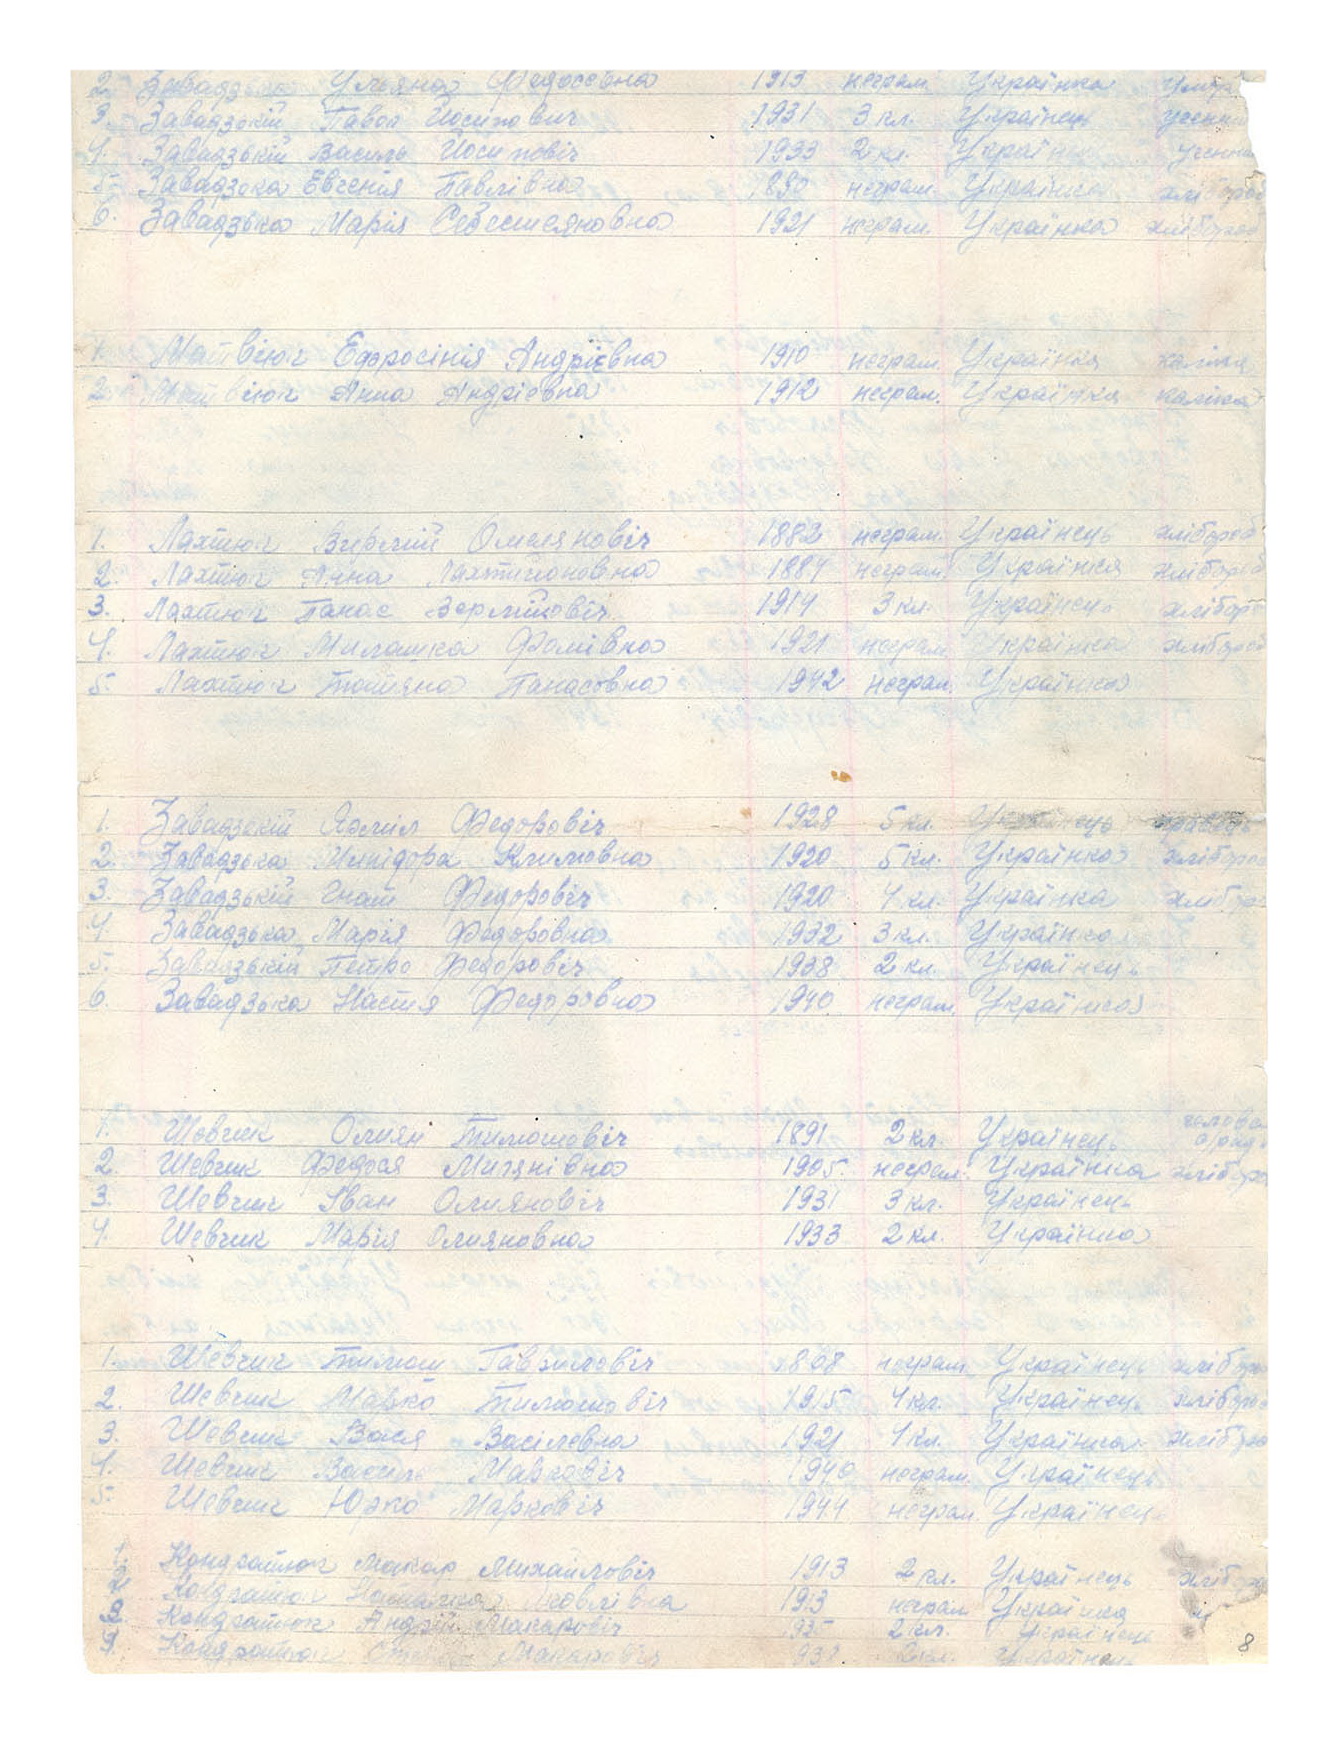 2. Завадзька Ульяна Федосєвна 1913 неграм. Українка
3. Завадзскій Павол Йосипович 1931 3 кл. Українець учени
4. Завадзький Василь Йосиповіч 1933 2 кл. Україн учени
5. Завадзска Евгенія Павлівна 1890 неграм. Українка хлібороб
6. Завадзька Марія Себестияновна 1921 неграм. Українка хлібороб
1. Матвіюк Ефросінія Андрієвна 1910 неграм. Українка каліка
2. Матвіюк Анна Андрієвна 1912 неграм. Українка каліка
1. Лахтюк Омеляновіч 1882 неграм. Українець хлібороб
2. Лахтюк Анна 1884 неграм. Українка хлібороб
3. Лахтюк Панас 1914 3 кл. Українець хлібор
4. Лахтюк Милашка Фомівна 1921 неграм. Українка хлібороб
5. Лахтюк Тотяна Панасовна 1942 неграм. Українка
1. Завадзский Федоровіч 1928 5 кл. Українець
2. Завадзька Климовна 1920 5 кл. Українка хлібороб
3. Завадзький Гнат Федоровіч 1920 4 кл. Українка хлібороб
4. Завадзька Марія Федоровна 1932 3 кл. Українка
5. Завадзький Петро Федоровіч 1938 2 кл. Українець
6. Завадзька Настя Федоровна 1940 неграм. Українка
1. Шевчик Омиян Тимошовіч 1891 2 кл. Українець голова
2. Шевчик Федося 1905 неграм. Українка хлібороб
3. Шевчик Іван Омияновіч 1931 3 кл. Українець
4. Шевчик Марія Омияновна 1933 2 кл. Українка
1. Шевчик Тимош Гаврилович неграм. Українець хлібор
2. Шевчик Марко Тимошовіч 1915 4 кл. Українець хлібороб
3. Шевчик Вася Васілевна 1921 4 кл. Українка хлібороб
4. Шевчик Василь Марковіч 1940 неграм. Українець
5. Шевчик Юрко Марковіч 1944 неграм. Українец
1. Кондратюк Макар Михайловіч 1913 2 кл. Українець хлібо
2. Кондратюк Наталка 1913 неграм Українка
3. Кондратюк Андрій Макаровіч 935 2 кл. Українець
4. Кондратюк Макаровіч 938 2 кл. Українець
8